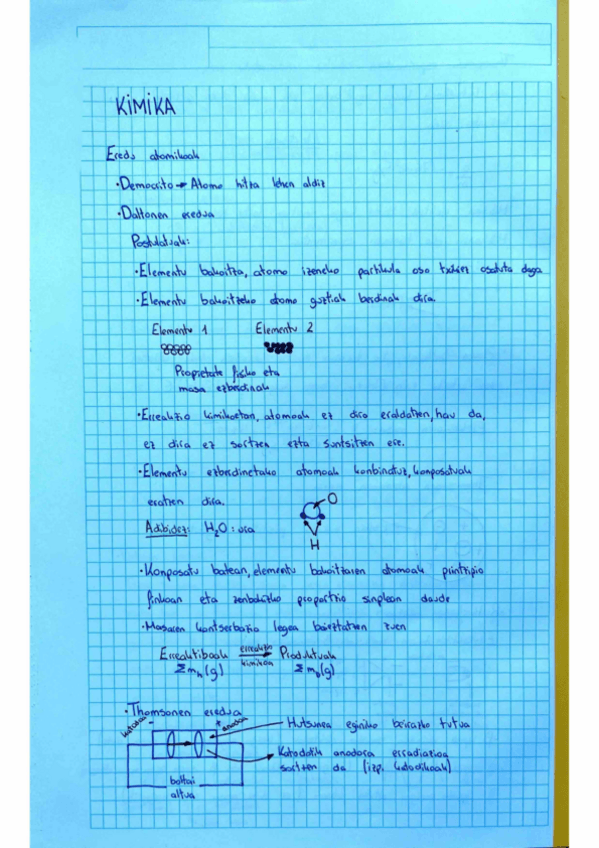 KiMiKA
Eredu atomikoak
·Democrito → Atomo hitza lehen aldiz
·Daltonen eredua
Postulatuak:
·Elementu bakoitza, atomo izeneko partikula oso txikiez osatuta dago
·Elementu bakoitzeko atomo guztiak berdinak dira.
Elementu 1 Elementu 2
Propietate fisiko eta
masa ezberdinak
·Erreakzio kimikoetan, atomoak ez dira eraldatzen, hau da,
ez dira ez sortzen ezta suntsitzen ere.
·Elementu ezberdinetako atomoak konbinatuz, konposatuak
eratzen dira.
Adibidez: H₂O: ura
O
H
·Konposatu batean, elementu bakoitzaren atomoak printzipio
finkoan eta zenbakizko proportzio sinplean daude
·Masaren kontserbazio legea baieztatzen zuen
Erreaktiboak erreakzio kimikoa → Produktuak
Σm (g) Σm (g)
·Thomsonen eredua
katodoa - + anodoa
Hutsunea eginiko beirazko tutua
Katodotik anodora erradiazioa
sortzen da (izp. katodikoak)
boltai
altua